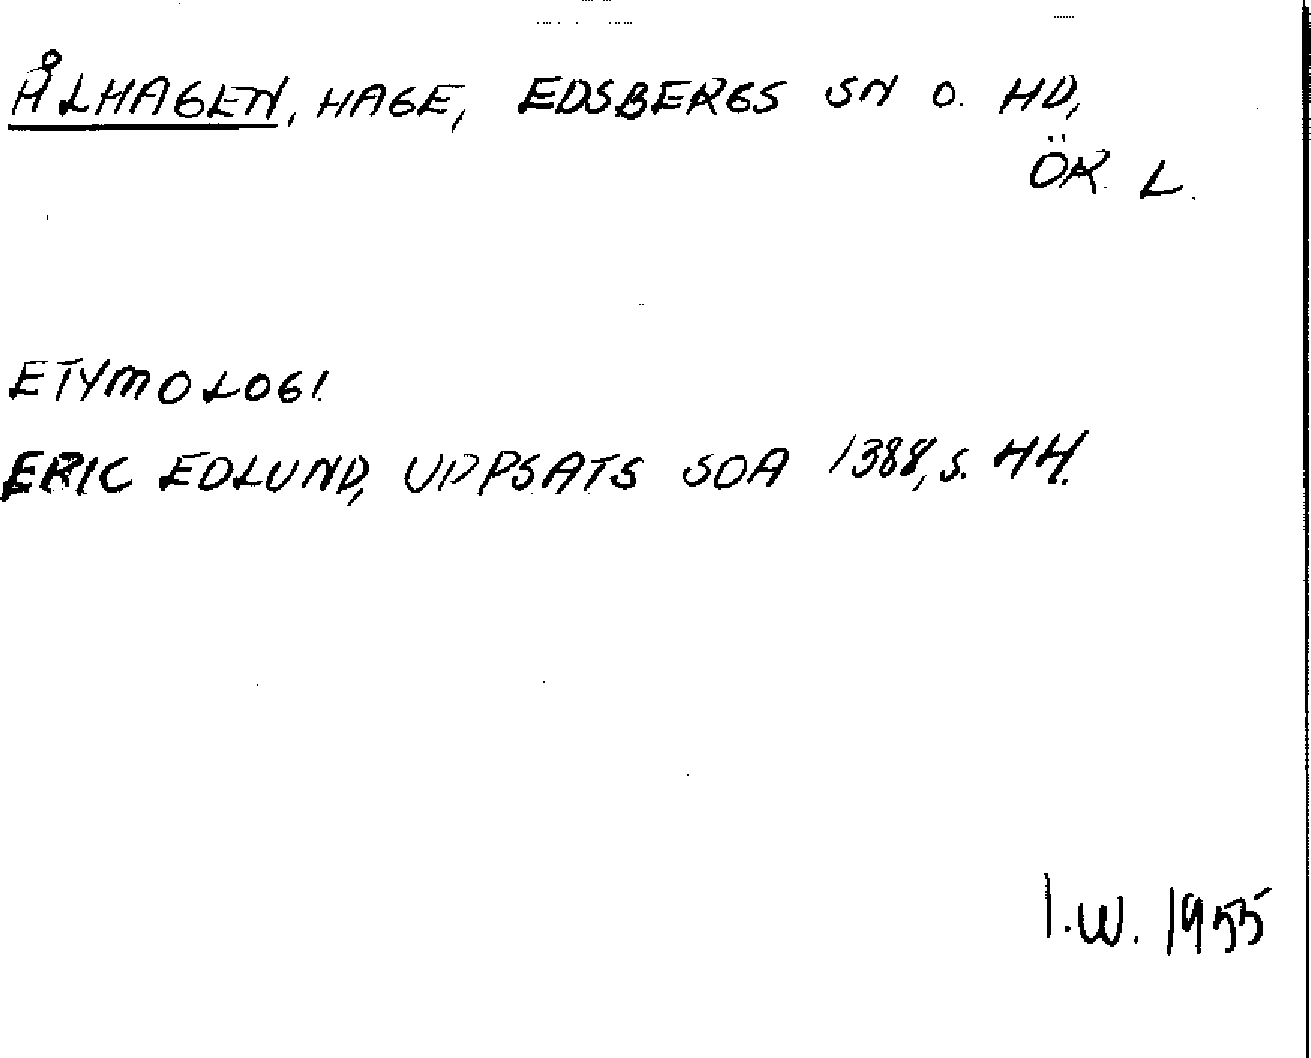 ÅLHAGEN, HAGE, EDSBERGS SN O. HD,
ÖR. L.
ETYMOLOGI
ERIC EDLUND, UPPSATS SOA 1388, S. 44.
I.W. 1955